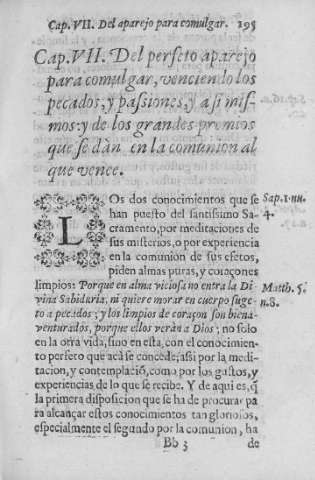 Cap. VII. Del aparejo para comulgar. 195
Cap. VII. Del perfeto aparejo
para comulgar, venciendo los
pecados, y passiones, y a si mis-
mos: y de los grandes premios
que se dàn en la comunion al
que vence.
LOs dos conocimientos que se
han puesto del santissimo Sa-
cramento, por meditaciones de
sus misterios, o por experiencia
en la comunion de sus efetos,
piden almas puras, y coraçones
limpios: Porque en alma viciosa no entra la Di
vina Sabiduria, ni quiere morar en cuerpo suge
to a pecados; y los limpios de coraçon son biena-
venturados, porque ellos veràn a Dios; no solo
en la otra vida, sino en esta, con el conocimien-
to perfeto que acà se concede, assi por la medi-
tacion, y contemplaciõ, como por los gustos, y
experiencias de lo que se recibe. Y de aqui es, q̃
la primera disposicion que se ha de procurar pa
ra alcançar estos conocimientos tan gloriosos,
especialmente el segundo por la comunion, ha
Bb 3 de
Sap. 1. nu.
4.
Matth. 5.
n. 8.